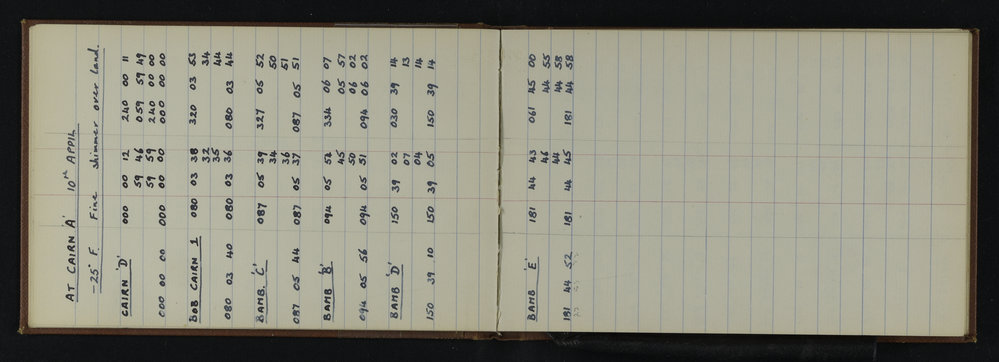 AT CAIRN 'A' 10th APRIL
-25° F. Fine shimmer over land.
CAIRN 'D' 000 00 12 240 00 11
59 46 059 59 49
59 59 240 00 00
000 00 00 000 00 00 000 00 00
BOB CAIRN 1 080 03 38 320 03 53
32 34
35 44
080 03 40 080 03 36 080 03 44
BAMB. 'C' 087 05 39 327 05 52
34 50
36 51
087 05 44 087 05 37 087 05 51
BAMB 'B' 094 05 52 334 06 07
45 05 57
50 06 02
094 05 56 094 05 51 094 06 02
BAMB 'D' 150 39 02 030 39 14
07 13
04 14
150 39 10 150 39 05 150 39 14
BAMB 'E' 181 44 43 061 45 00
46 44 55
44 44 58
181 44 52 181 44 45 181 44 58